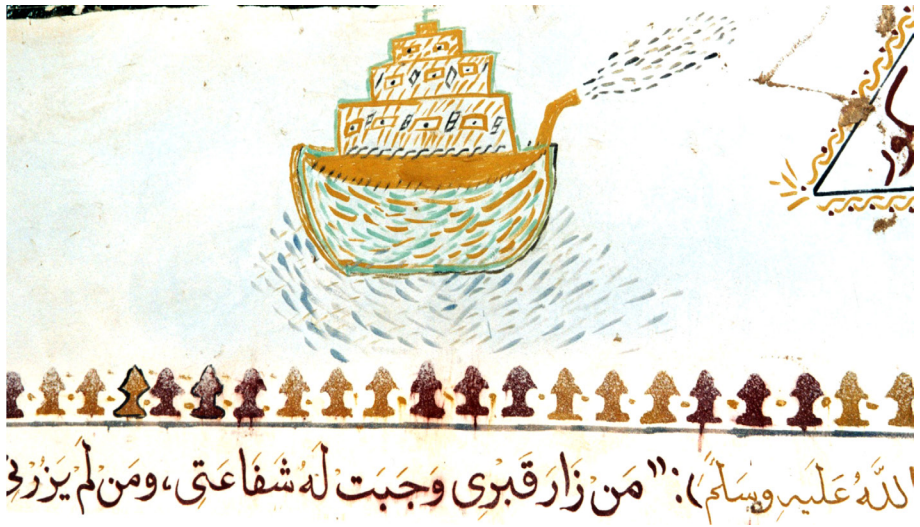 اللَّهُ عَلَيهِ وسَلَّمَ): "مَنْ زارَ قَبرِى وَجبَت لَهُ شَفَاعَتى، ومَن لَمْ يَزُرْنِى